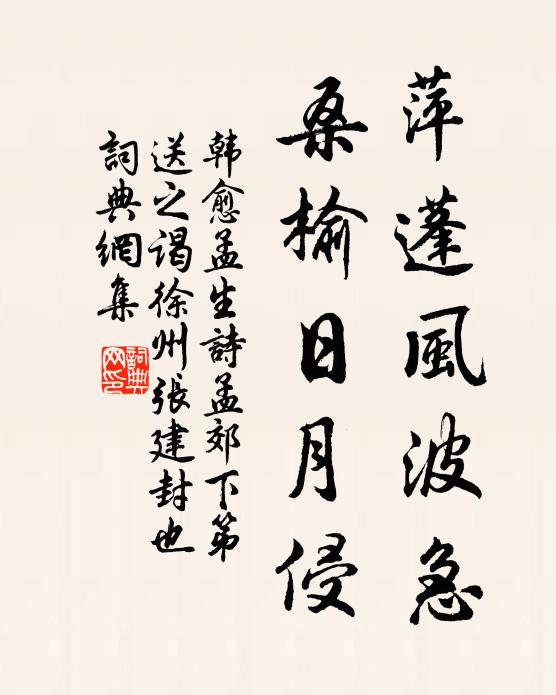 萍蓬風波急
桑榆日月侵
韩愈孟生詩孟郊下第
送之谒徐州張建封也
詞典網集
詞典
网印